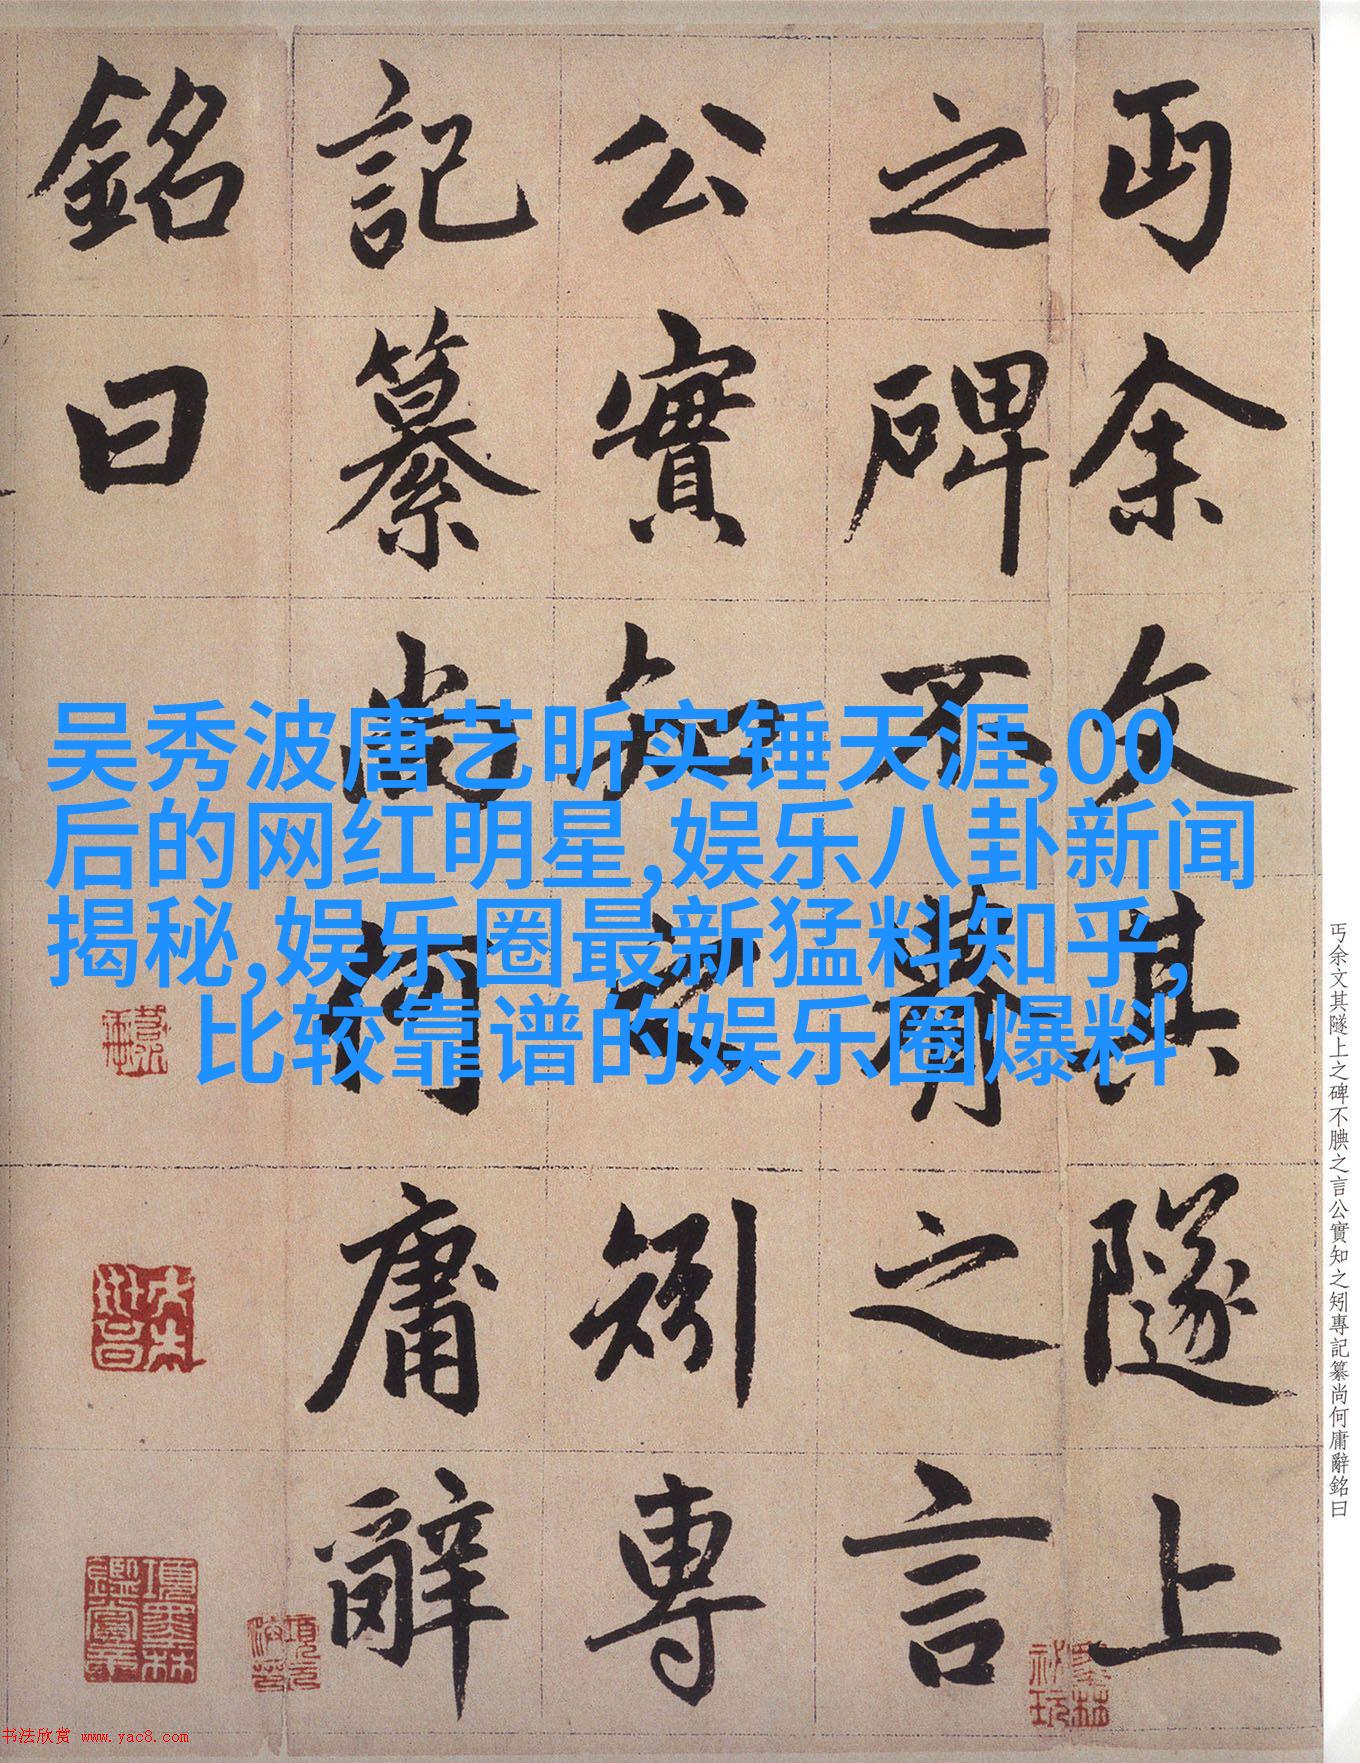 丐余文其隧上
之碑不腆之言
公實知之矧專
記纂尚何庸辭
銘曰
吴秀波唐艺昕实锤天涯,00
后的网红明星,娱乐八卦新闻
揭秘,娱乐圈最新猛料知乎,
比较靠谱的娱乐圈爆料
丐余文其隧上之碑不腆之言公實知之矧專記纂尚何庸辭銘曰
书法欣赏 www.yac8.com